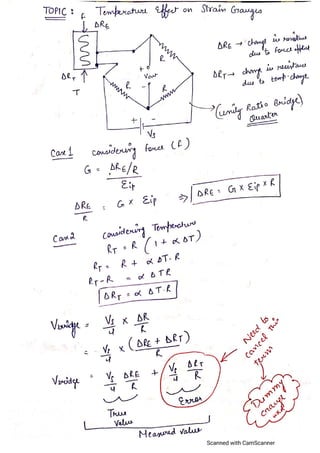 TOPIC: Temperature Effect on Strain Gauges
F
ΔRE
ΔRE → change in resistance
due to force effect
R
+
Vout
-
R
R
ΔRT
T
ΔRT → change in resistance
due to temp. change
(Unity Ratio Bridge)
Quarter
+ -
Vs
Case 1 Considering force (F)
G = ΔRE/R
Eip
ΔRE = G x Eip
R
⇒ ΔRE = G x Eip x R
Case 2 Considering Temperature
RT = R (1 + α ΔT)
RT = R + α ΔT.R
RT-R = α ΔTR
ΔRT = α ΔT.R
Vbridge = Vs/4 x ΔR/R
= Vs/4 x (ΔRE + ΔRT)/R
Vbridge = Vs/4 ΔRE/R + Vs/4 ΔRT/R
True
Value
Error
Measured Value
Need to
cancel this
term
Dummy
Gauge
used
Scanned with CamScanner